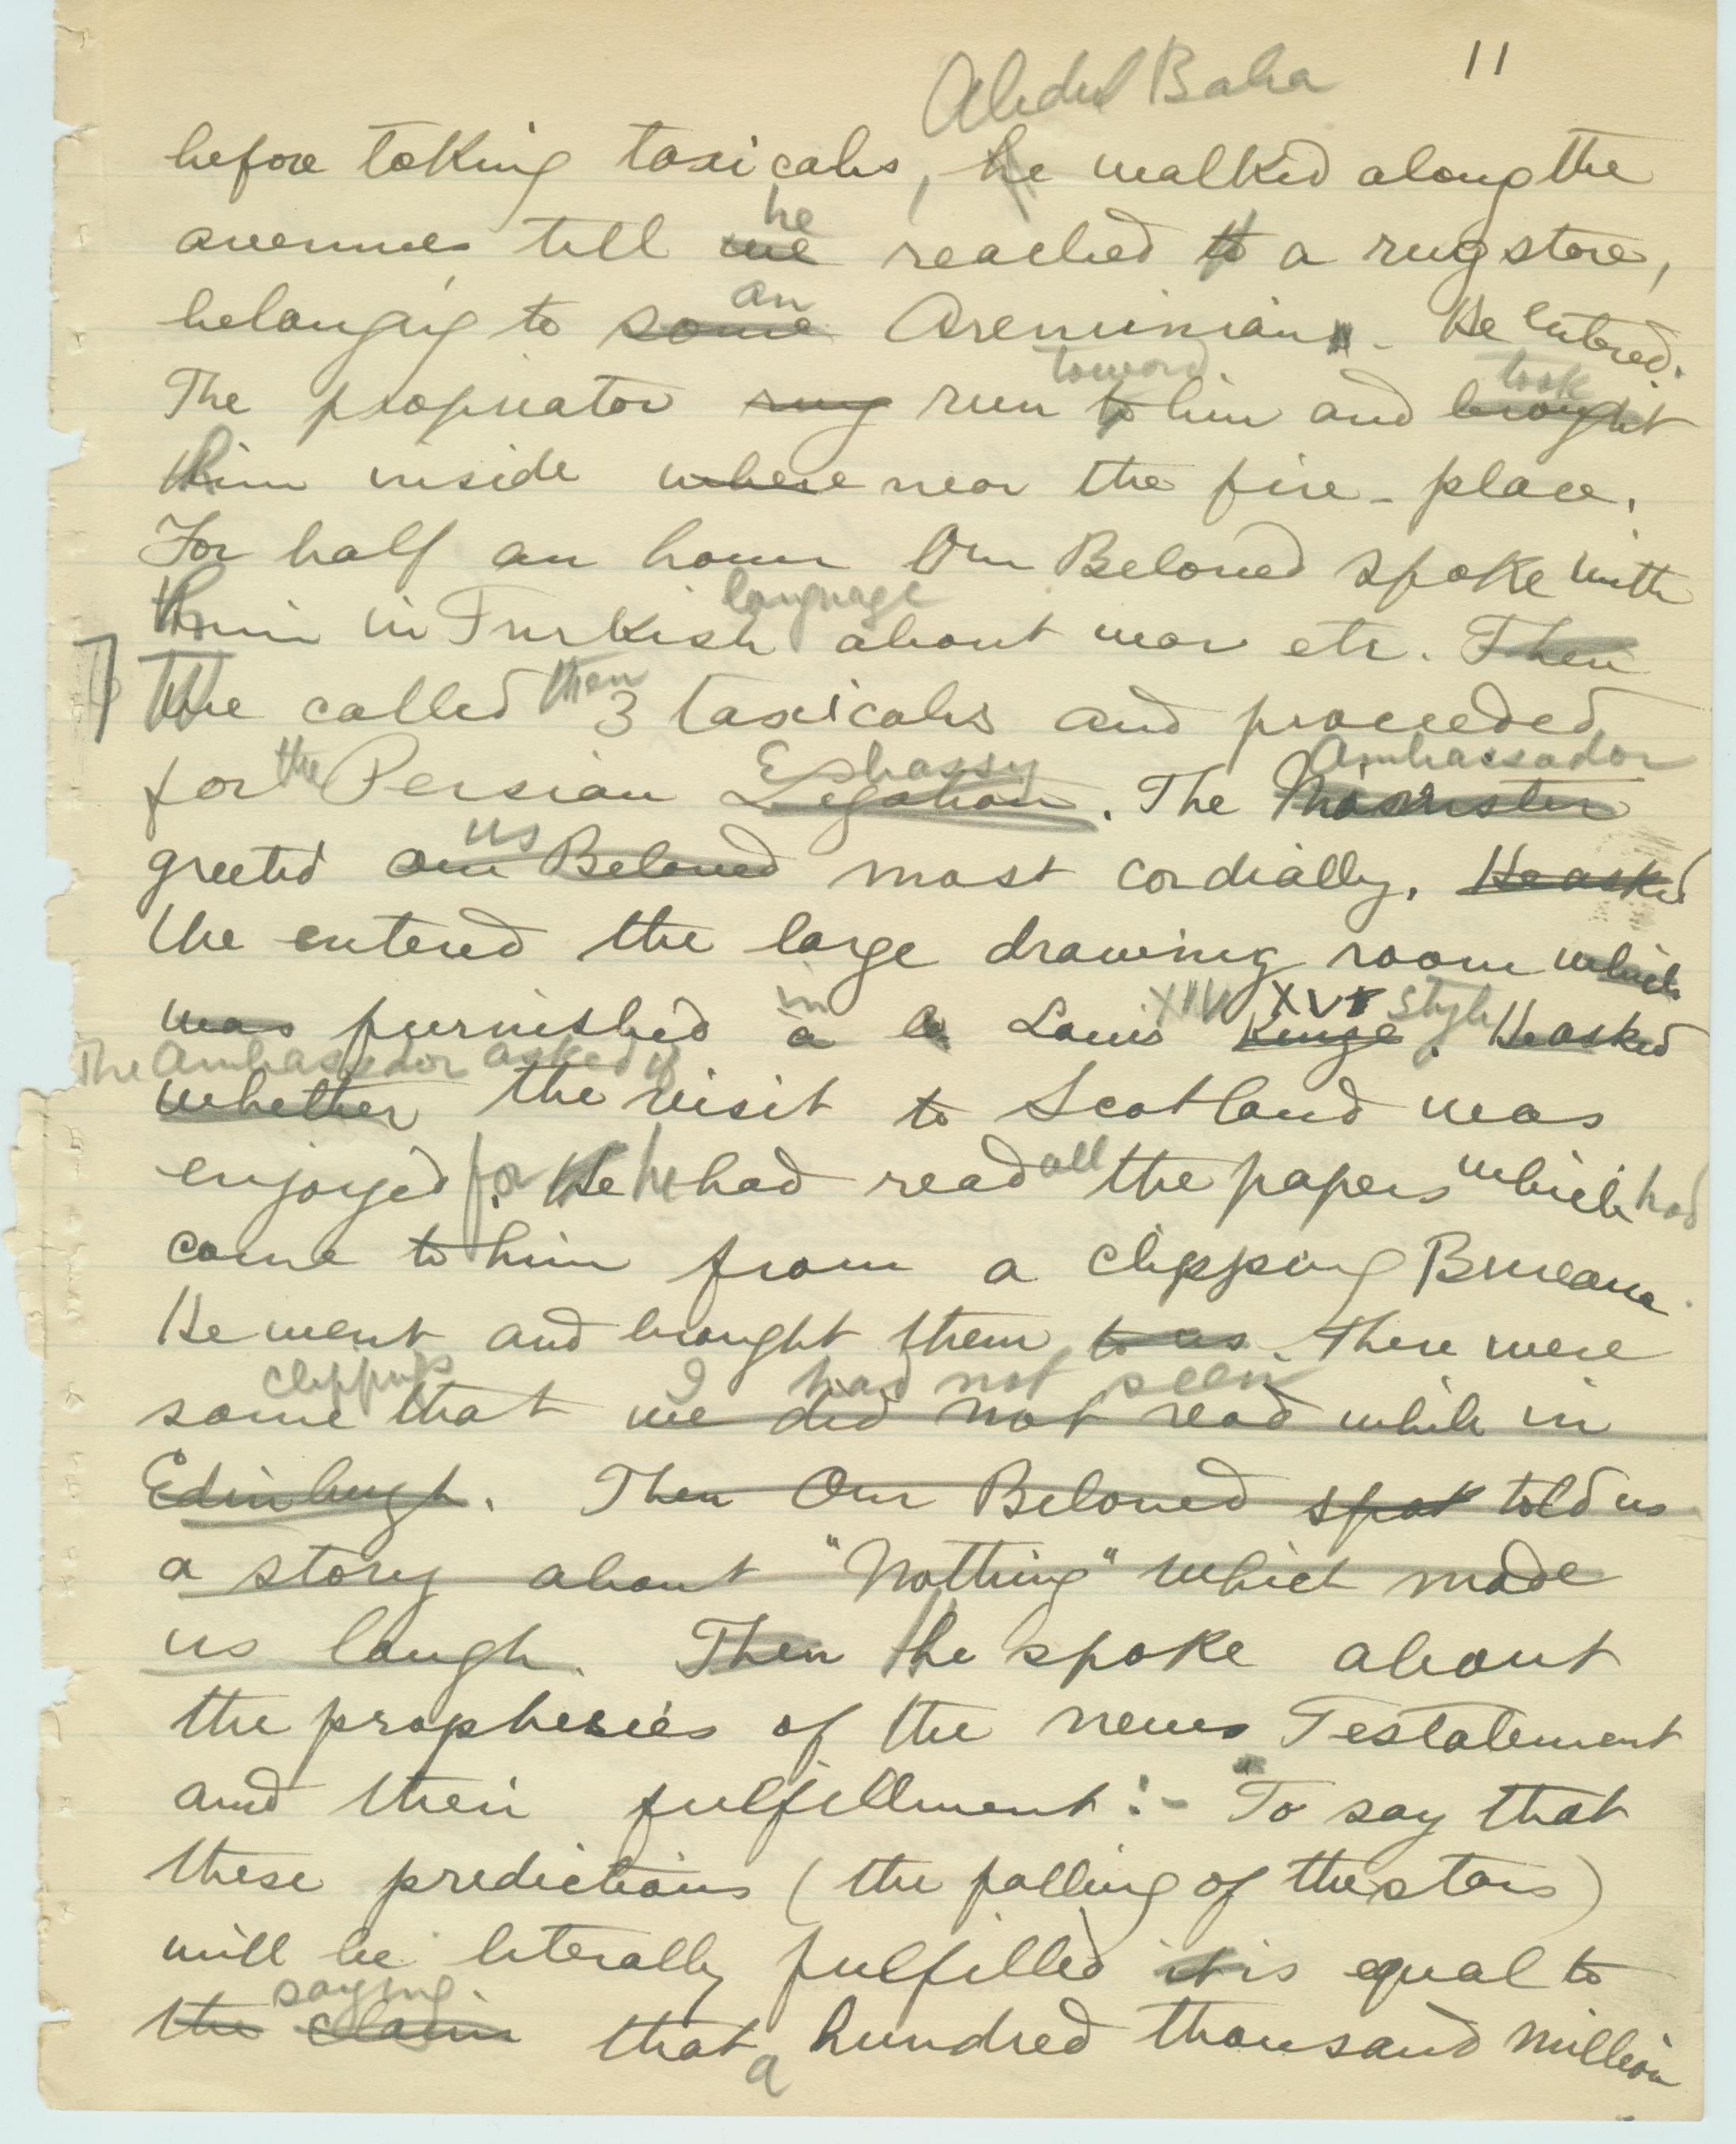 11
Abdul Baha
before taking taxicabs, he walked along the
he
avenues till we reached to a rug store,
an
belongig to some Areminian. He entered.
toward took
The propriator rug run to him and brought
him inside where near the fire-place.
For half an hour Our Beloved spoke with
language
him in Turkish about war etc. Then
then
He called 3 taxicabs and proceeded
the Embassy Ambassador
for Persian Legation. The Minister
us
greeted our Beloved most cordially. He asked
We entered the large drawing room which
in XIV XVI style
was furnished a a Louis Kinze. He asked
The Ambassador asked if
whether the visit to Scotland was
enjoyed for. He he had read all the papers which had
come to him from a clipping Bureau.
He went and brought them to us. There were
clippings I had not seen
some that we did not read while in
Edinburgh. Then Our Beloved spok told us
a story about "Nothing" which made
us laugh. Then He spoke about
the prophesies of the news Testatement
and their fulfillment:- "To say that
these predictions (the falling of the stars)
will be literally fulfilled it is equal to
saying
the claim that a hundred thousand million